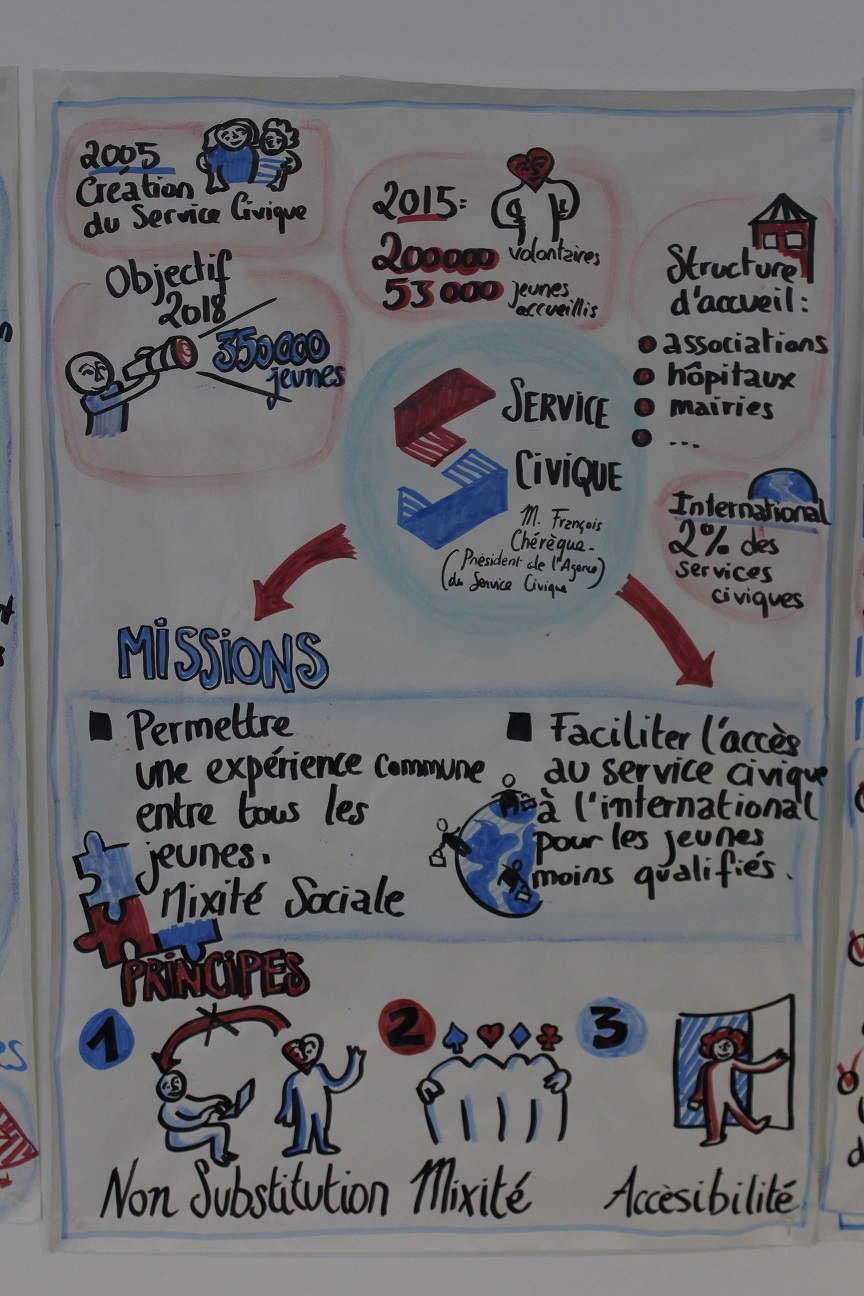 2005
Création
du Service Civique
Objectif
2018
350000
jeunes
2015:
200000 volontaires
53000 jeunes
accueillis
Structure
d'accueil:
associations
hôpitaux
mairies
...
SERVICE
CIVIQUE
M. François
Chérèque.
(Président de l'Agence)
(du Service Civique)
International
2% des
services
civiques
MISSIONS
Permettre
une expérience commune
entre tous les
jeunes.
Mixité Sociale
Faciliter l'accès
au service civique
à l'international
pour les jeunes
moins qualifiés.
PRINCIPES
1
2
3
Non Substitution
Mixité
Accèsibilité